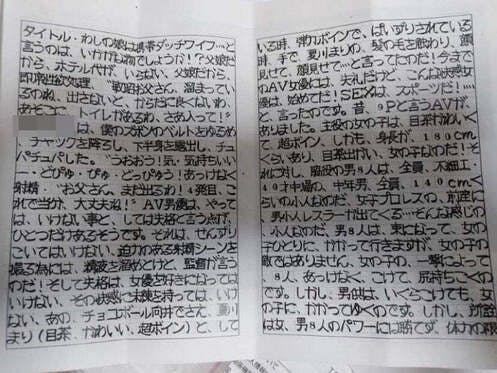 タイトル・わしの娘は携帯ダッチワイフ…と
言うのは、いかがな物でしょうか!?父娘だ
から、ホテル代が、いらない、父娘だから、
溜まってい
るのね、出さないと、からだに良くないわ、
トイレがあるわ、さあ入って!」
は、僕のズボンのベルトをゆるめ
、チャックを降ろし、下半身を露出し、チュ
パチュパした。「うおおう!気・気持ちいい
ー・どぴゅ・ぴゅ・どっぴゅう!あっけなく
射精　"お父さん、まだ出るわ!4発目、こ
れで当分、大丈夫ね!"AV男優は、やって
は、いけない事と、しては失格と言う点が、
ひとつだけあるそうです。それは、せんずり
こいてはいけない。迫力のある射精シーンを
撮る為には、精液を溜めとけと、監督が言う
のだ!そして失格は、女優を好きになっては
いけない、その快感に未練を持っては、いけ
ない、あの、チョコボール向井でさえ、夏川
まり（目茶、かわいい、超ボイン）と、して
いる時、弾力ボインで、ぱいずりされている
時、手で、夏川まりの、髪の毛を敵わり、顔
見せて、顔見せて…と言ってたのだ!今まで
のAV女優には、失礼だけど、こんな快感女
優は、始めてだ!SEXは、スポーツだ!…
と、言ったのです。昔、9Pと言うAVが、
ありました。主役の女の子は、目茶かわいく
、超ボイン、しかも、身長が、180cm
くらいあり、目茶出かい、女の子なのだ!そ
れに対し、脇役の男8人は、全員、不細工、
40才中場の、中年男、全員、140cmく
らいの小人なのだ、女子プロレスの、前座に
男小人レスラーが出てくる…そんな感じの
小人なのだ、男8人は、束になって、女の子
ひとりに、かかって行きますが、女の子の
敵ではありません、女の子の、一撃によって
、8人、あっけなく、こけて、尻持ちこくの
です。しかし、男供は、いくらこけても、女
の子に、かかってゆくのです。しかし、
は女、男8人のパワーには勝てず、体力の限